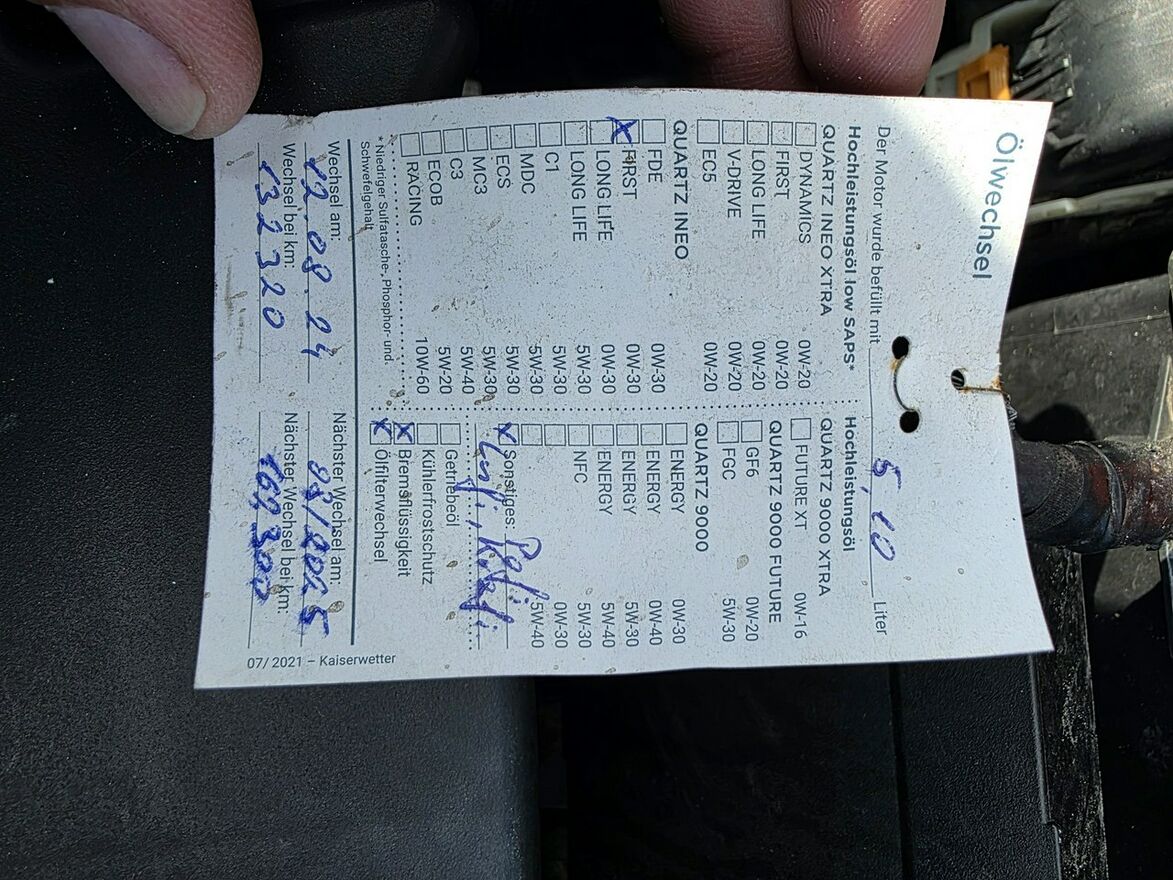 Ölwechsel
Der Motor wurde befüllt mit 5,10 Liter
Hochleistungsöl low SAPS*
QUARTZ INEO XTRA
DYNAMICS 0W-20
FIRST 0W-20
LONG LIFE 0W-20
V-DRIVE 0W-20
EC5 0W-20
QUARTZ INEO
FDE 0W-30
X FIRST 0W-30
LONG LIFE 0W-30
LONG LIFE 5W-30
C1 5W-30
MDC 5W-30
ECS 5W-30
MC3 5W-30
C3 5W-40
ECOB 5W-20
RACING 10W-60
* Niedriger Sulfatasche-, Phosphor- und
Schwefelgehalt
Hochleistungsöl
QUARTZ 9000 XTRA
FUTURE XT 0W-16
QUARTZ 9000 FUTURE
GF6 0W-20
FGC 5W-30
QUARTZ 9000
ENERGY 0W-30
ENERGY 0W-40
ENERGY 5W-30
ENERGY 5W-40
NFC 5W-30
0W-30
5W-40
X Sonstiges:
Getriebeöl
Kühlerfrostschutz
X Bremsflüssigkeit
X Ölfilterwechsel
Wechsel am: Nächster Wechsel am:
12.08.24 08/2025
Wechsel bei km: Nächster Wechsel bei km:
132320
07/2021 – Kaiserwetter